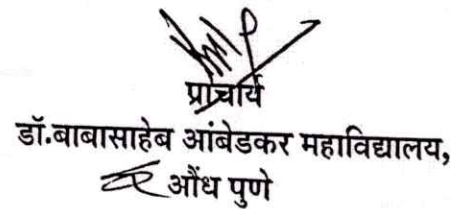 प्राचार्य
डॉ.बाबासाहेब आंबेडकर महाविद्यालय,
औंध पुणे